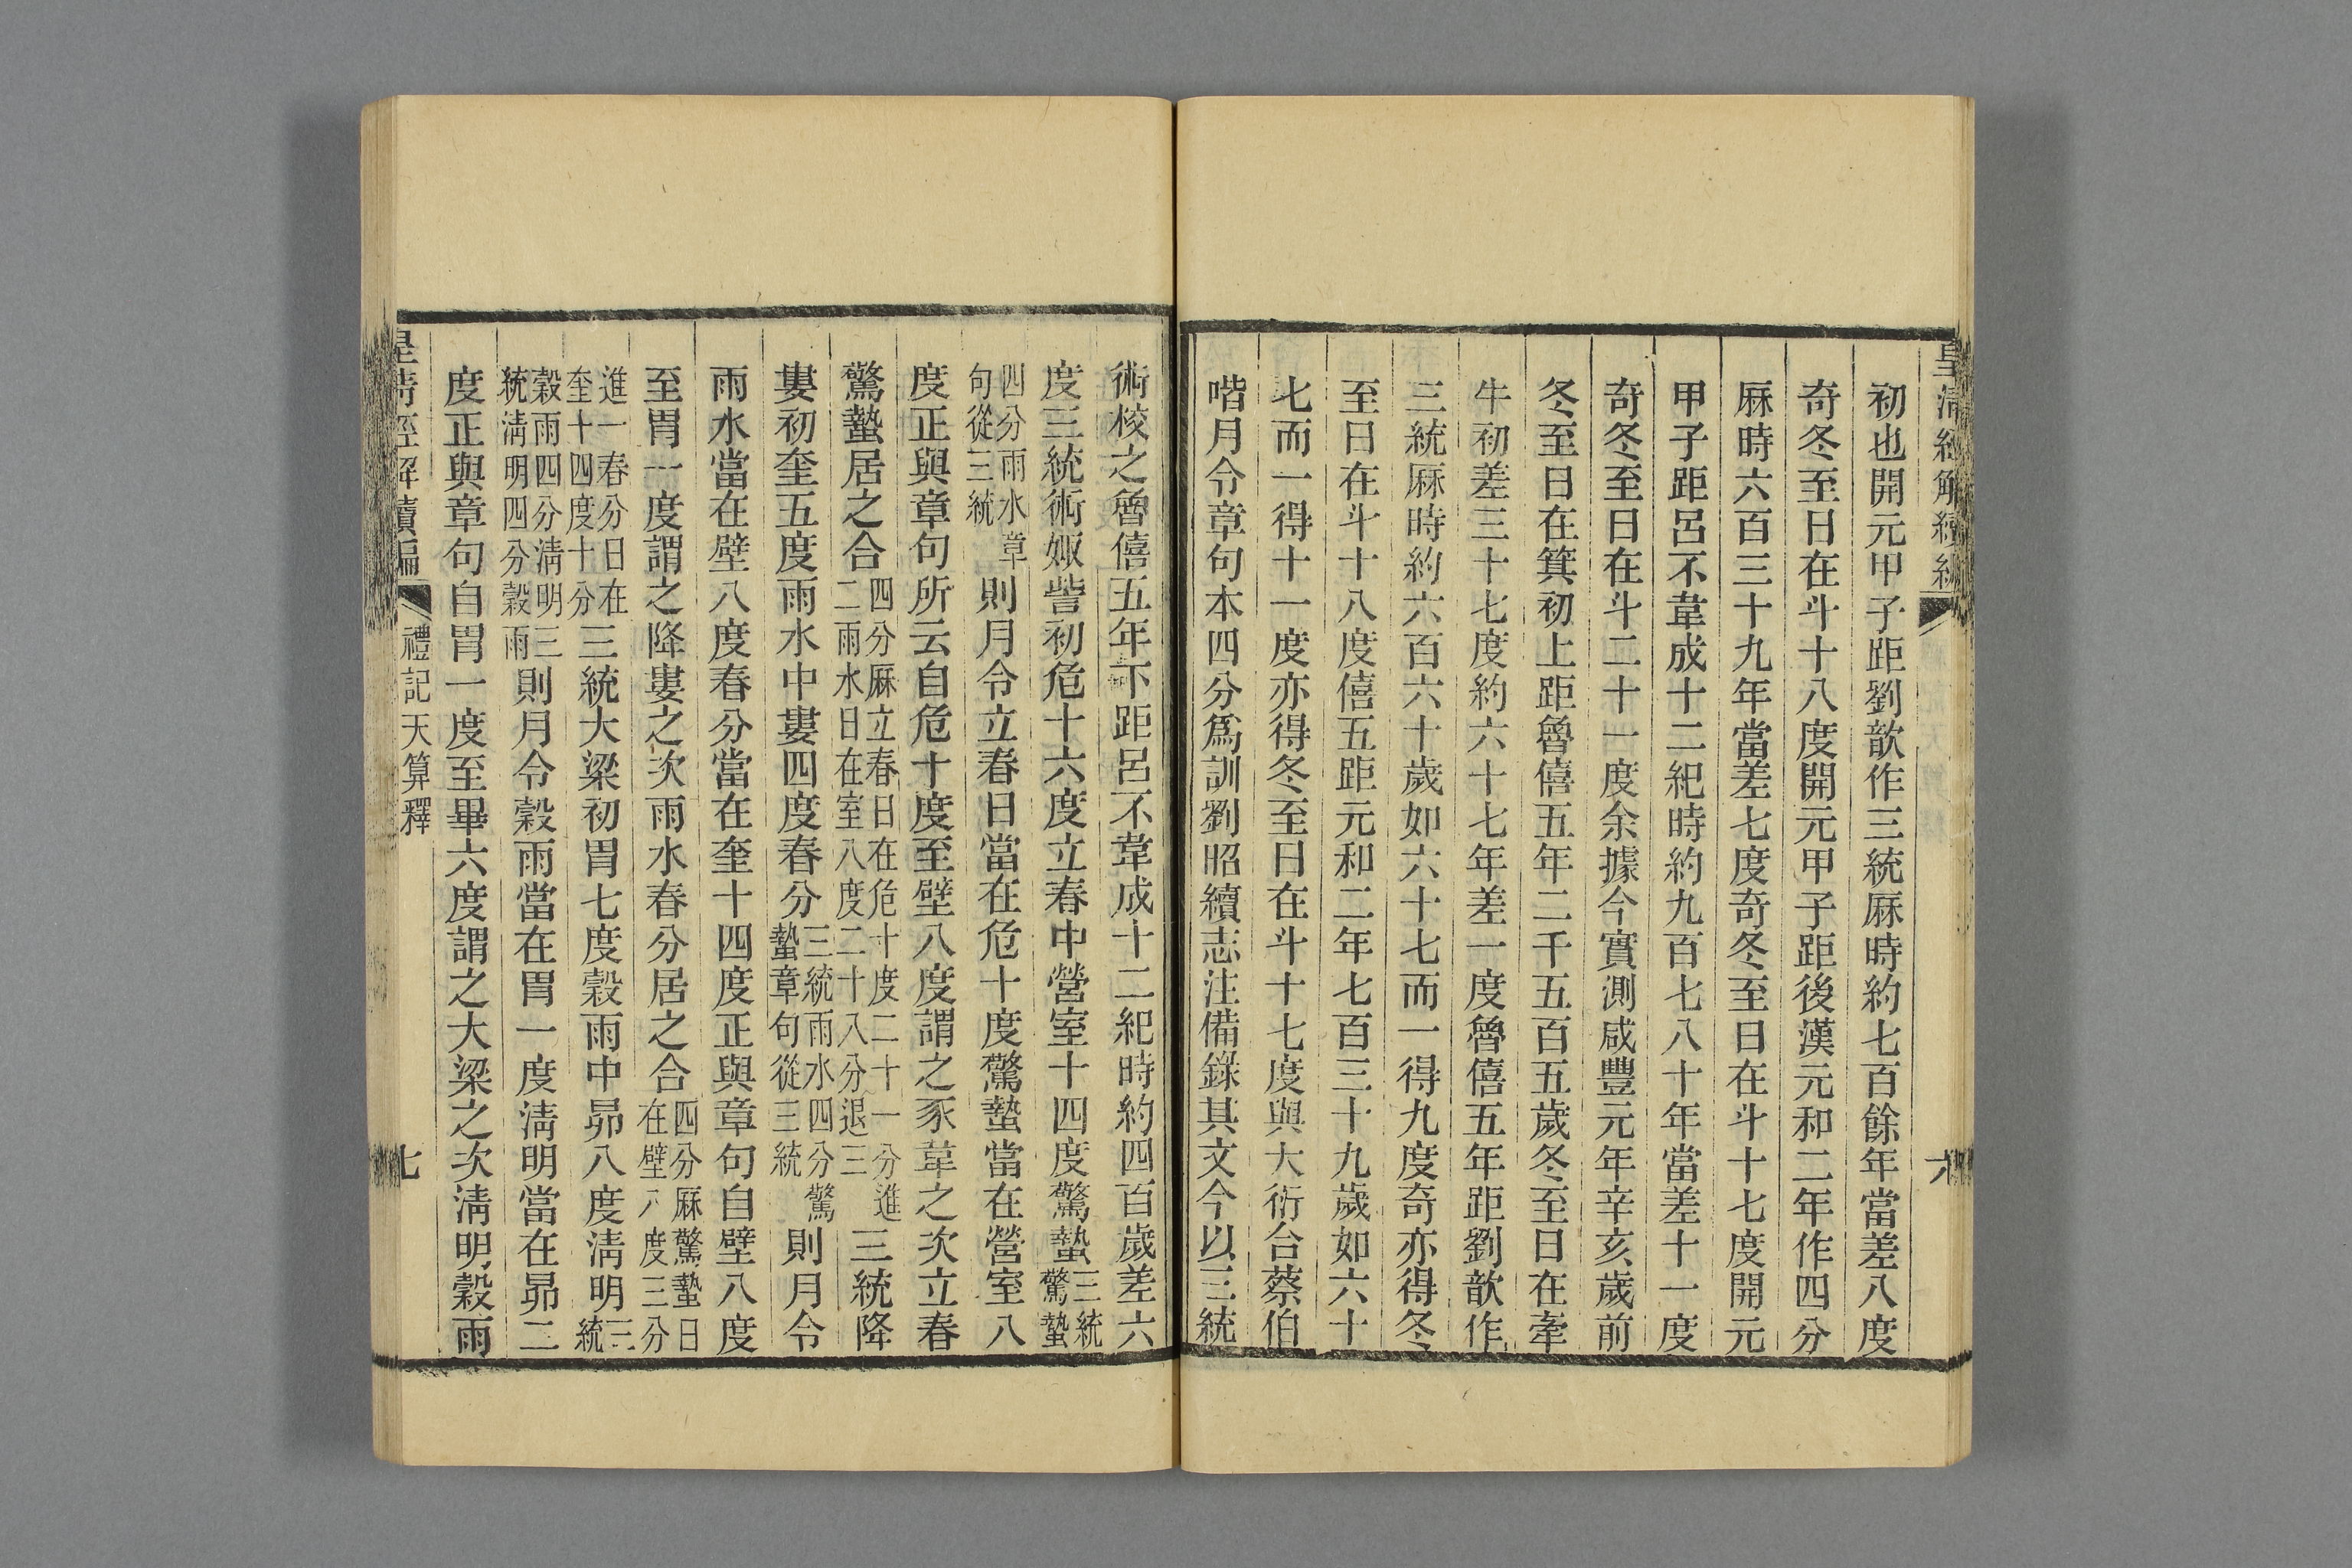 皇清經解續編
六
初也開元甲子距劉歆作三統厤時約七百餘年當差八度
奇冬至日在斗十八度開元甲子距後漢元和二年作四分
厤時六百三十九年當差七度奇冬至日在斗十七度開元
甲子距呂不韋成十二紀時約九百七八十年當差十一度
奇冬至日在斗二十一度余據今實測咸豐元年辛亥歲前
冬至日在箕初上距魯僖五年二千五百五歲冬至日在牽
牛初差三十七度約六十七年差一度魯僖五年距劉歆作
三統厤時約六百六十歲如六十七而一得九度奇亦得冬
至日在斗十八度僖五距元和二年七百三十九歲如六十
七而一得十一度亦得冬至日在斗十七度與大衍合蔡伯
喈月令章句本四分爲訓劉昭續志注備錄其文今以三統
術校之魯僖五年下距呂不韋成十二紀時約四百歲差六
度三統術娵訾初危十六度立春中營室十四度驚蟄三統驚蟄
四分雨水章句從三統則月令立春日當在危十度驚蟄當在營室八
度正與章句所云自危十度至壁八度謂之豕韋之次立春
驚蟄居之合四分厤立春日在危十度二十一分進二雨水日在室八度二十八分退三三統降
婁初奎五度雨水中婁四度春分三統雨水四分驚蟄章句從三統則月令
雨水當在壁八度春分當在奎十四度正與章句自壁八度
至胃一度謂之降婁之次雨水春分居之合四分厤驚蟄日在壁八度三分
進一春分日在奎十四度十分三統大梁初胃七度穀雨中昴八度淸明三統
穀雨四分淸明三統淸明四分穀雨則月令穀雨當在胃一度淸明當在昴二
度正與章句自胃一度至畢六度謂之大梁之次淸明穀雨
皇清經解續編
禮記天算釋
七